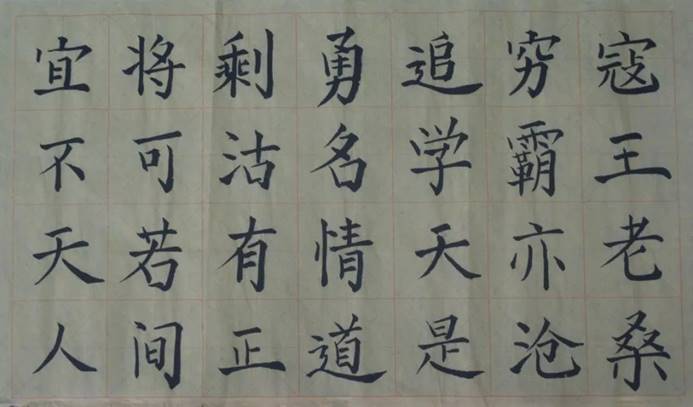 宜将剩勇追穷寇
不可沽名学霸王
天若有情天亦老
人间正道是沧桑